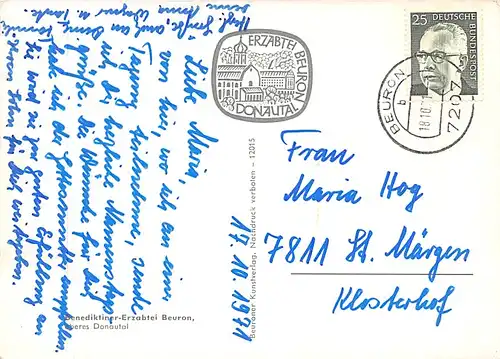 Liebe Maria,
von hier, wo ich an einer
Tagung teilnehme, sende
ich Dir herzliche Namenstags-
grüße. Die Blumen für Dich
hab ich der Gottesmutter empfohlen.
Sie wird sie zur guten Erfüllung an
Herrn John für Dich weitergeben.
Herzl. Grüße, auch an Deine Familie
Deine Anna Wagner u. Tante
17. 10. 1971
ERZABTEI BEURON
DONAUTAL
25 DEUTSCHE
BUNDESPOST
BEURON
b
18.10.
7207
Frau
Maria Hog
7811 St. Märgen
Klosterhof
Beuroner Kunstverlag. Nachdruck verboten - 12015
Benediktiner-Erzabtei Beuron,
oberes Donautal